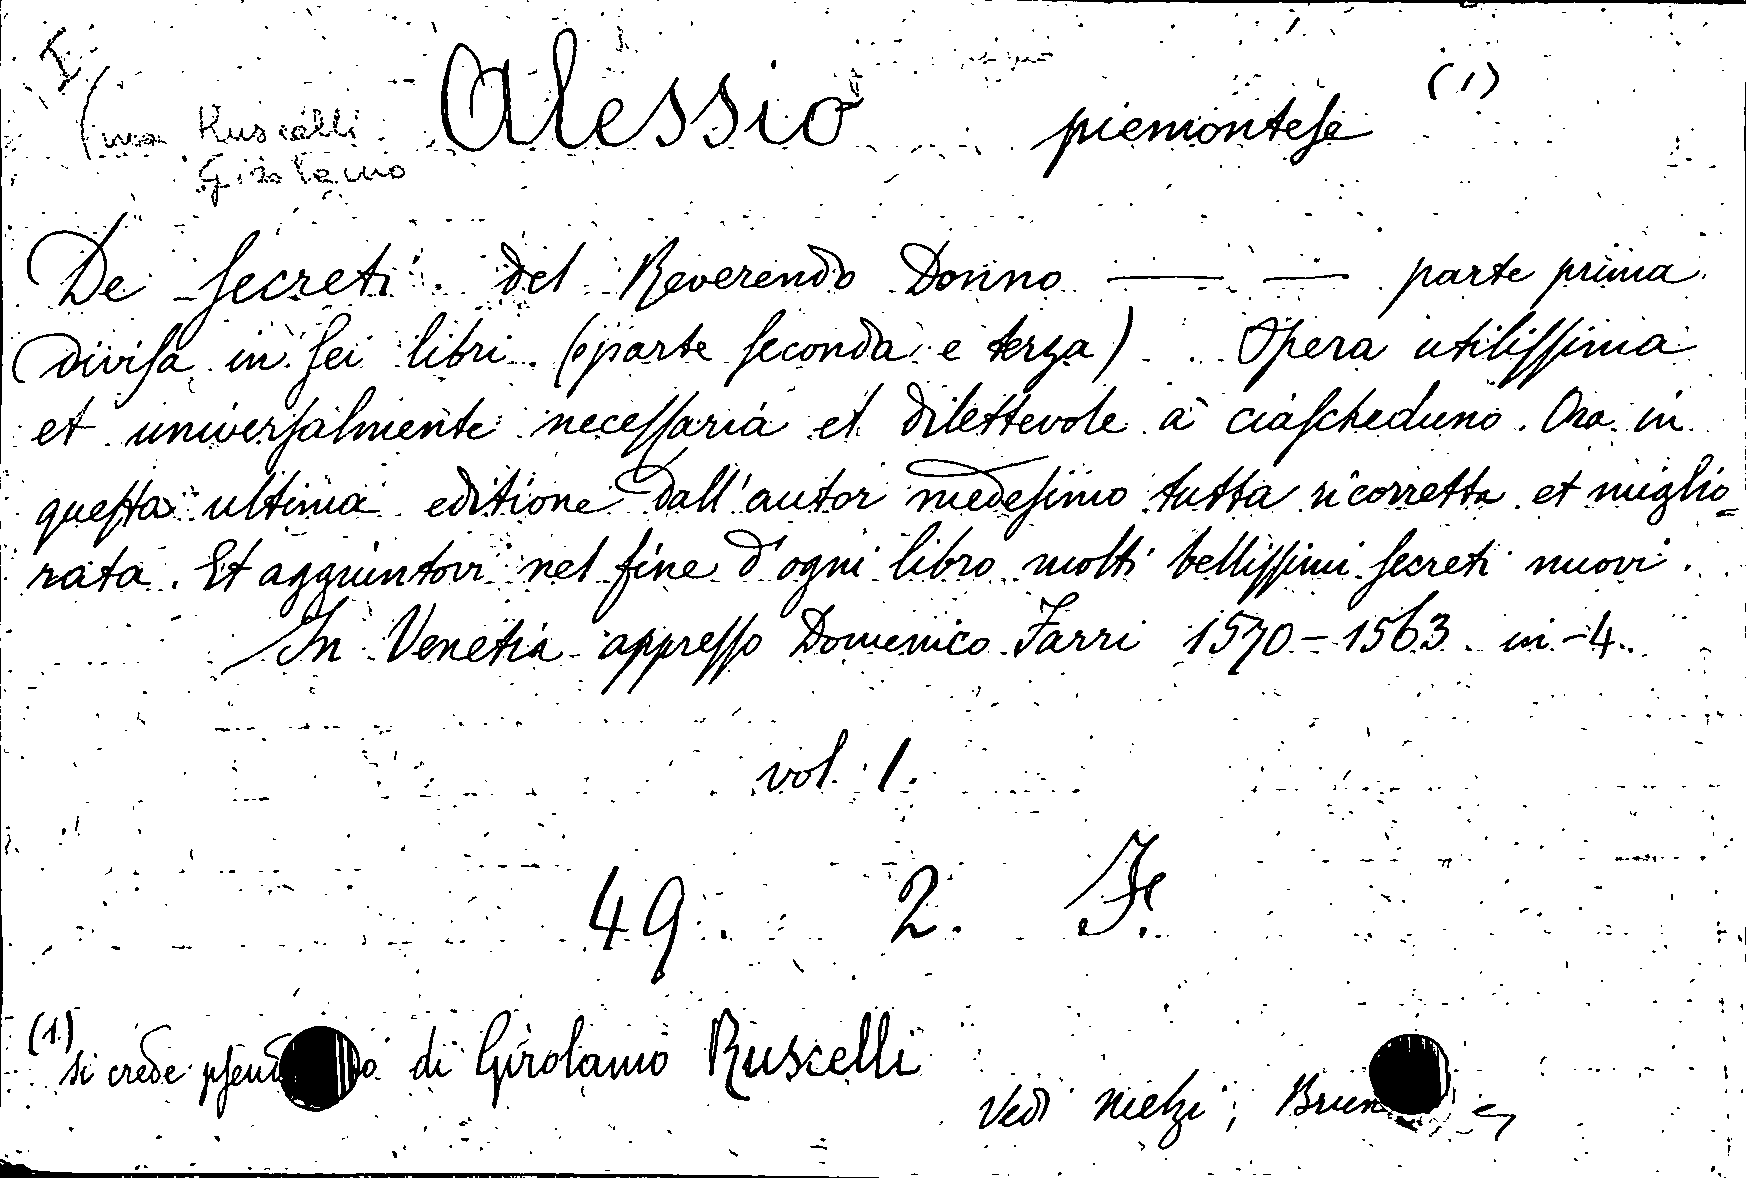 Alessio piemontese (1)
Ruscelli
Girolamo
De secreti del Reverendo Donno —— — parte prima
divisa in sei libri (e parte seconda e terza). Opera utilissima
et universalmente necessaria et dilettevole a ciascheduno. Ora in
questa ultima editione dall'autor medesimo tutta ricorretta et miglio=
rata. Et aggiuntovi nel fine d'ogni libro molti bellissimi secreti nuovi.
In Venetia appresso Domenico Farri 1570-1563 in-4.
vol. 1.
49. 2. F.
(1) si crede di Girolamo Ruscelli
Vedi Melzi;